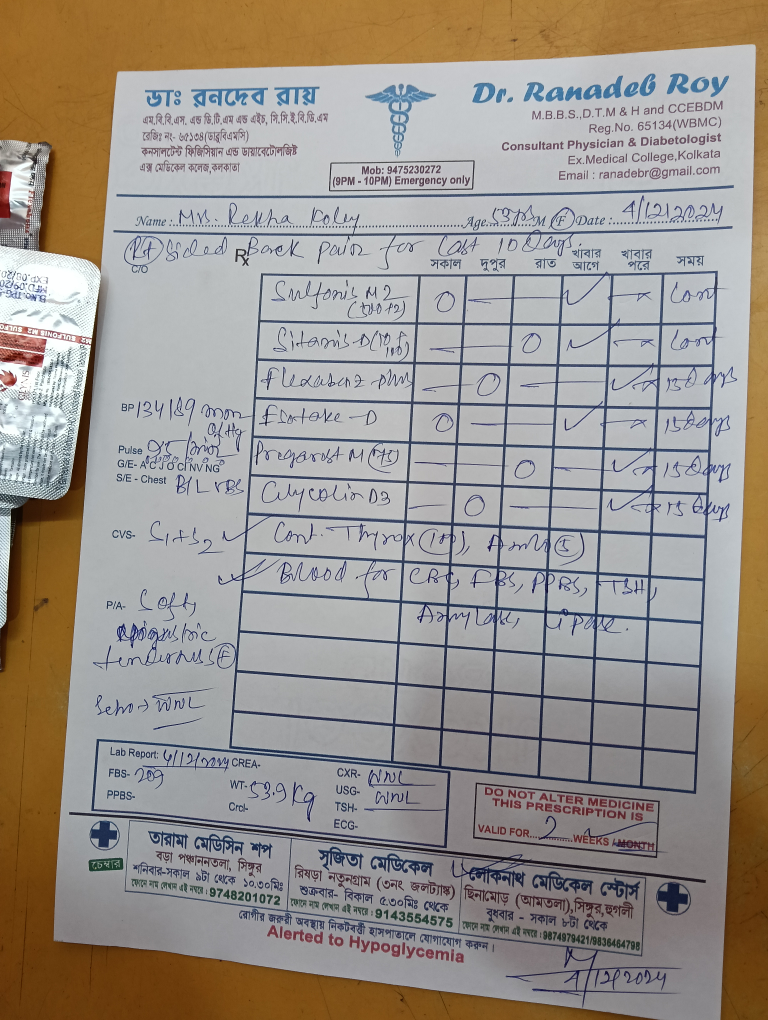 ডাঃ রনদেব রায়
এম,বি,বি,এস, এন্ড ডি,টি,এম এন্ড এইচ, সি,সি,ই,বি,ডি,এম
রেজিঃ নং- ৬৫১৩৪(ডাব্লুবিএমসি)
কনসালটেন্ট ফিজিসিয়ান এন্ড ডায়াবেটোলজিষ্ট
এক্স মেডিকেল কলেজ,কলকাতা
Mob: 9475230272
(9PM - 10PM) Emergency only
Dr. Ranadeb Roy
M.B.B.S.,D.T.M & H and CCEBDM
Reg.No. 65134(WBMC)
Consultant Physician & Diabetologist
Ex.Medical College,Kolkata
Email : ranadebr@gmail.com
Name: Mrs. Rekha Koley Age 53 yrs M F Date : 4/12/2024
Rt Sided Back pain for last 10 days.
C/O Rx সকাল দুপুর রাত খাবার আগে খাবার পরে সময়
Sulfonis M2 (500+2) Cont
Sitanis D (10+100) Cont
Flexabenz plus 15 days
Esotake-D 15 days
Pregarest M (75) 15 days
Glycolin D3 15 days
Cont. Thyrox (100), Amlo (5)
Blood for CBC, FBS, PPBS, TSH,
Amylase, Lipase.
BP 134/89 mm of Hg
Pulse 95/min
G/E- A C J O Cl NV NG
S/E - Chest B/L VBS
CVS- S1+S2
P/A- Soft,
epigastric
tenderness +
WNL
Lab Report: 4/12/2024 CREA-
FBS- 209
PPBS-
WT- 53.9 Kg
Crcl-
CXR- WNL
USG- WNL
TSH-
ECG-
DO NOT ALTER MEDICINE
THIS PRESCRIPTION IS
VALID FOR 2 WEEKS / MONTH
চেম্বার
তারামা মেডিসিন শপ
বড়া পঞ্চাননতলা, সিঙ্গুর
শনিবার-সকাল ৯টা থেকে ১০.৩০মিঃ
ফোনে নাম লেখান এই নম্বরে : 9748201072
সুজিতা মেডিকেল
রিষড়া নতুনগ্রাম (৩নং জলট্যাঙ্ক)
শুক্রবার- বিকাল ৫.৩০মিঃ থেকে
ফোনে নাম লেখান এই নম্বরে : 9143554575
লোকনাথ মেডিকেল স্টোর্স
ছিনামোড় (আমতলা),সিঙ্গুর,হুগলী
বুধবার - সকাল ৮টা থেকে
ফোনে নাম লেখান এই নম্বরে : 9874979421/9836464798
রোগীর জরুরী অবস্থায় নিকটবর্তী হাসপাতালে যোগাযোগ করুন।
Alerted to Hypoglycemia
4/12/2024
SULFONIS M2